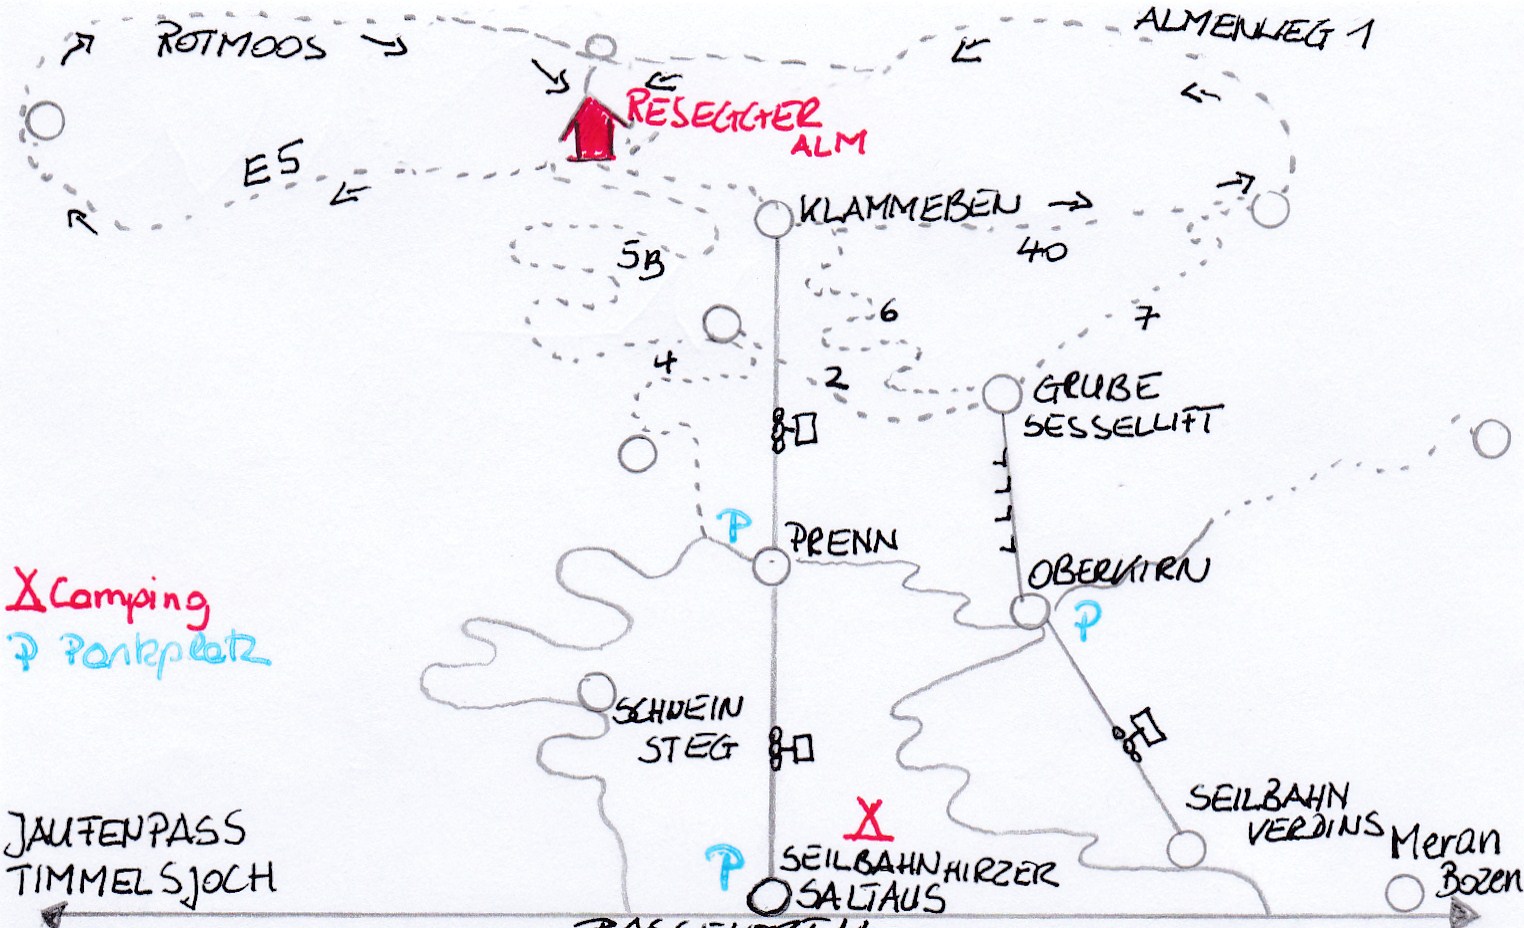 ALMENWEG 1
ROTMOOS
RESEGGER
ALM
E5
KLAMMEBEN
40
5B
6
7
4
2
GRUBE
SESSELLIFT
P
PRENN
OBERKIRN
P
X Camping
P Parkplatz
SCHWEIN
STEG
SEILBAHN
VERDINS
X
Meran
Bozen
JAUFENPASS
TIMMELSJOCH
P
SEILBAHN HIRZER
SALTAUS